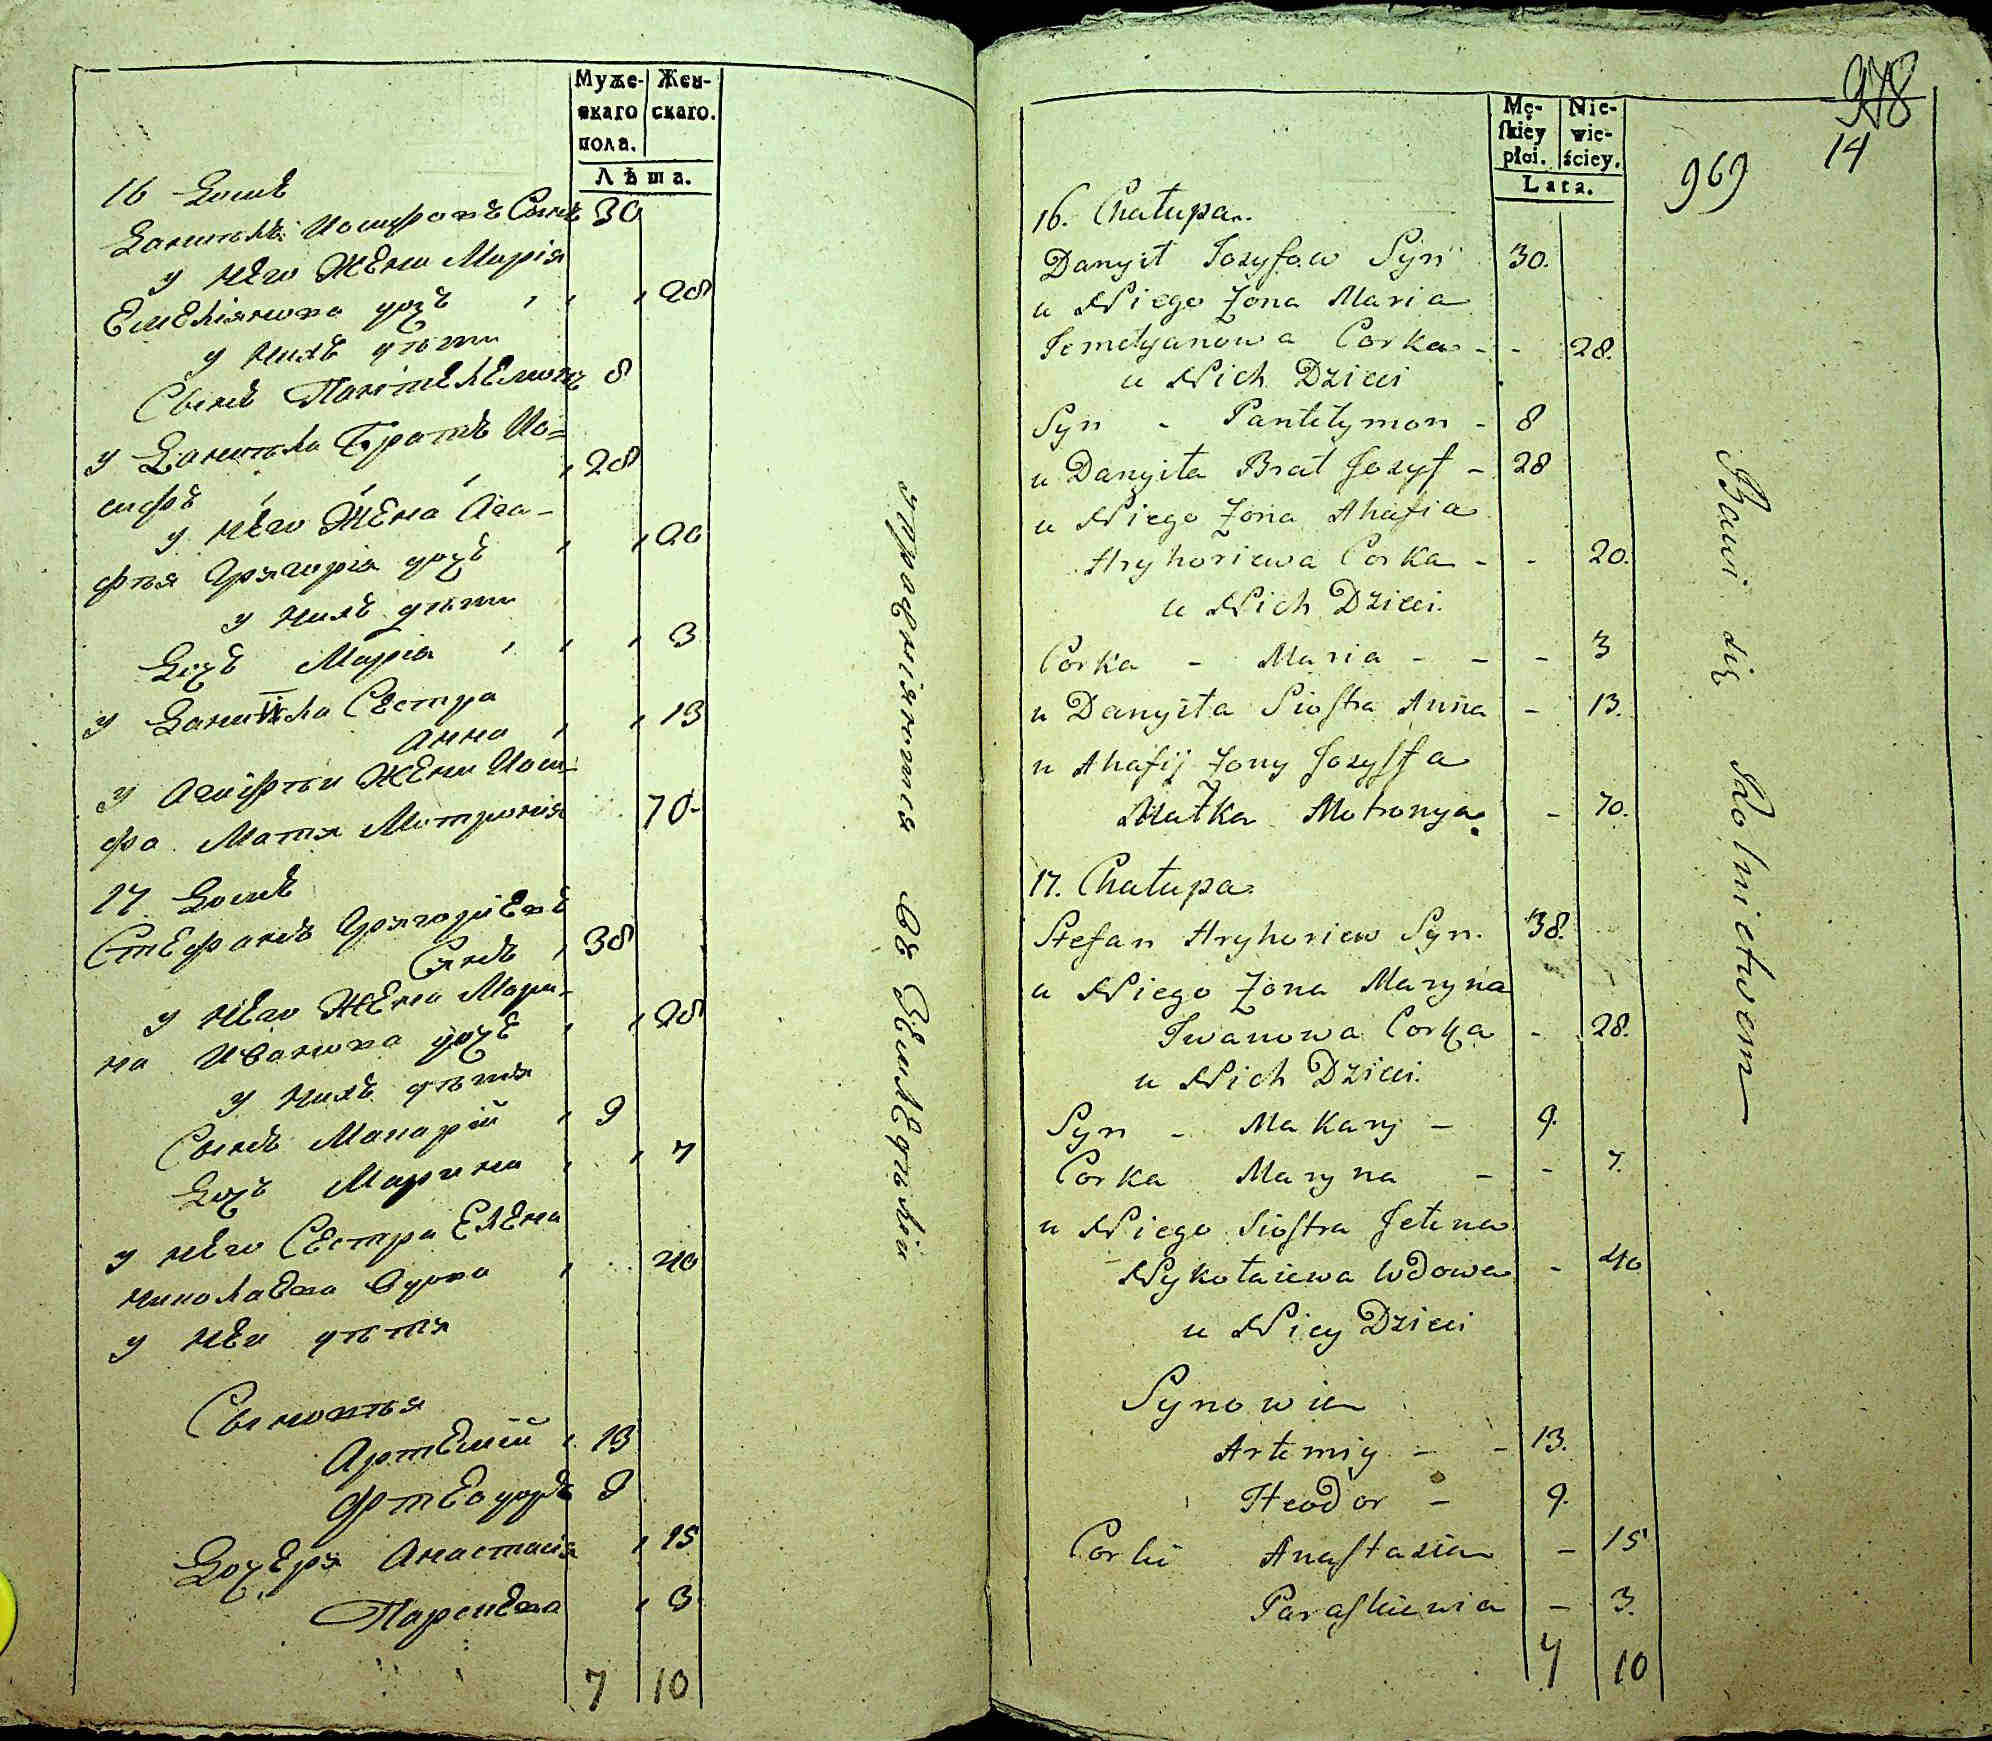 Муже-
скаго
пола.
Жен-
скаго.
Лѣта.
16 Домъ
Данилъ Иосифовъ Сынъ 30
у него Жена Марія
Емеліянова доч , , , 28
у нихъ дѣти
Сынъ Пантелемонъ 8
у Данила Братъ Ио=
сифъ , , , , 28
у него Жена Ага-
фія Григорія доч , , 20
у нихъ дѣти
Доч Марія , , , 3
у Данила Сестра
Анна , , 13
у Агафіи Жени Иоси-
фа Матя Мотронія 70-
17 Домъ
Стефанъ Григоріевъ
Сынъ , 38
у него Жена Мари-
на Иванова доч , , 28
у нихъ дѣтя
Сынъ Макарій , 9
Доч Марина , , 7
у него Сестра Елена
Николаева вдова , 40
у неи дѣтя
Сыновья
Артемій , 13
Фтеодоръ 9
Дочеря Анастасія , 15
Парскева , 3
7 10
упражняются въ Земледѣліи
978
14
969
Mę-
skiey
płci.
Nie-
wie-
ściey.
Lata.
16. Chałupa.
Danyił Jozyfow Syn 30.
u Niego Żona Maria
Jemelyanowa Corka - - 28.
u Nich Dzieci
Syn - Pantelymon - 8
u Danyiła Brat Jozyf - 28
u Niego Żona Ahafia
Hryhoriewa Corka - - 20.
u Nich Dzieci.
Corka - Maria - - - 3
u Danyiła Siostra Anna - 13.
u Ahafij Żony Jozyffa
Matka Motronya - 70.
17. Chałupa.
Stefan Hryhoriew Syn. 38.
u Niego Żona Maryna
Iwanowa Corka - 28.
u Nich Dzieci.
Syn - Makary - 9.
Corka Maryna - - 7.
u Niego Siostra Jelena
Nykołaiewa wdowa - 40
u Niey Dzieci
Synowie
Artemiy - - 13.
Fteodor - 9.
Corki Anastazia - 15
Paraskiewia - 3.
7 10
Bawi się Rolnictwem